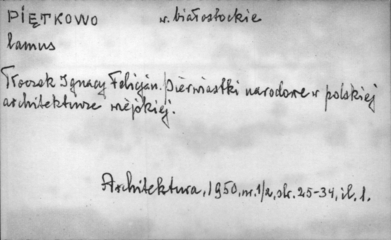 PIĘTKOWO w. białostockie
lamus
Tłoczek Ignacy Felicjan. Pierwiastki narodowe w polskiej
architekturze wiejskiej.
Architektura, 1950, nr. 1/2, str. 25-34, il. 1.